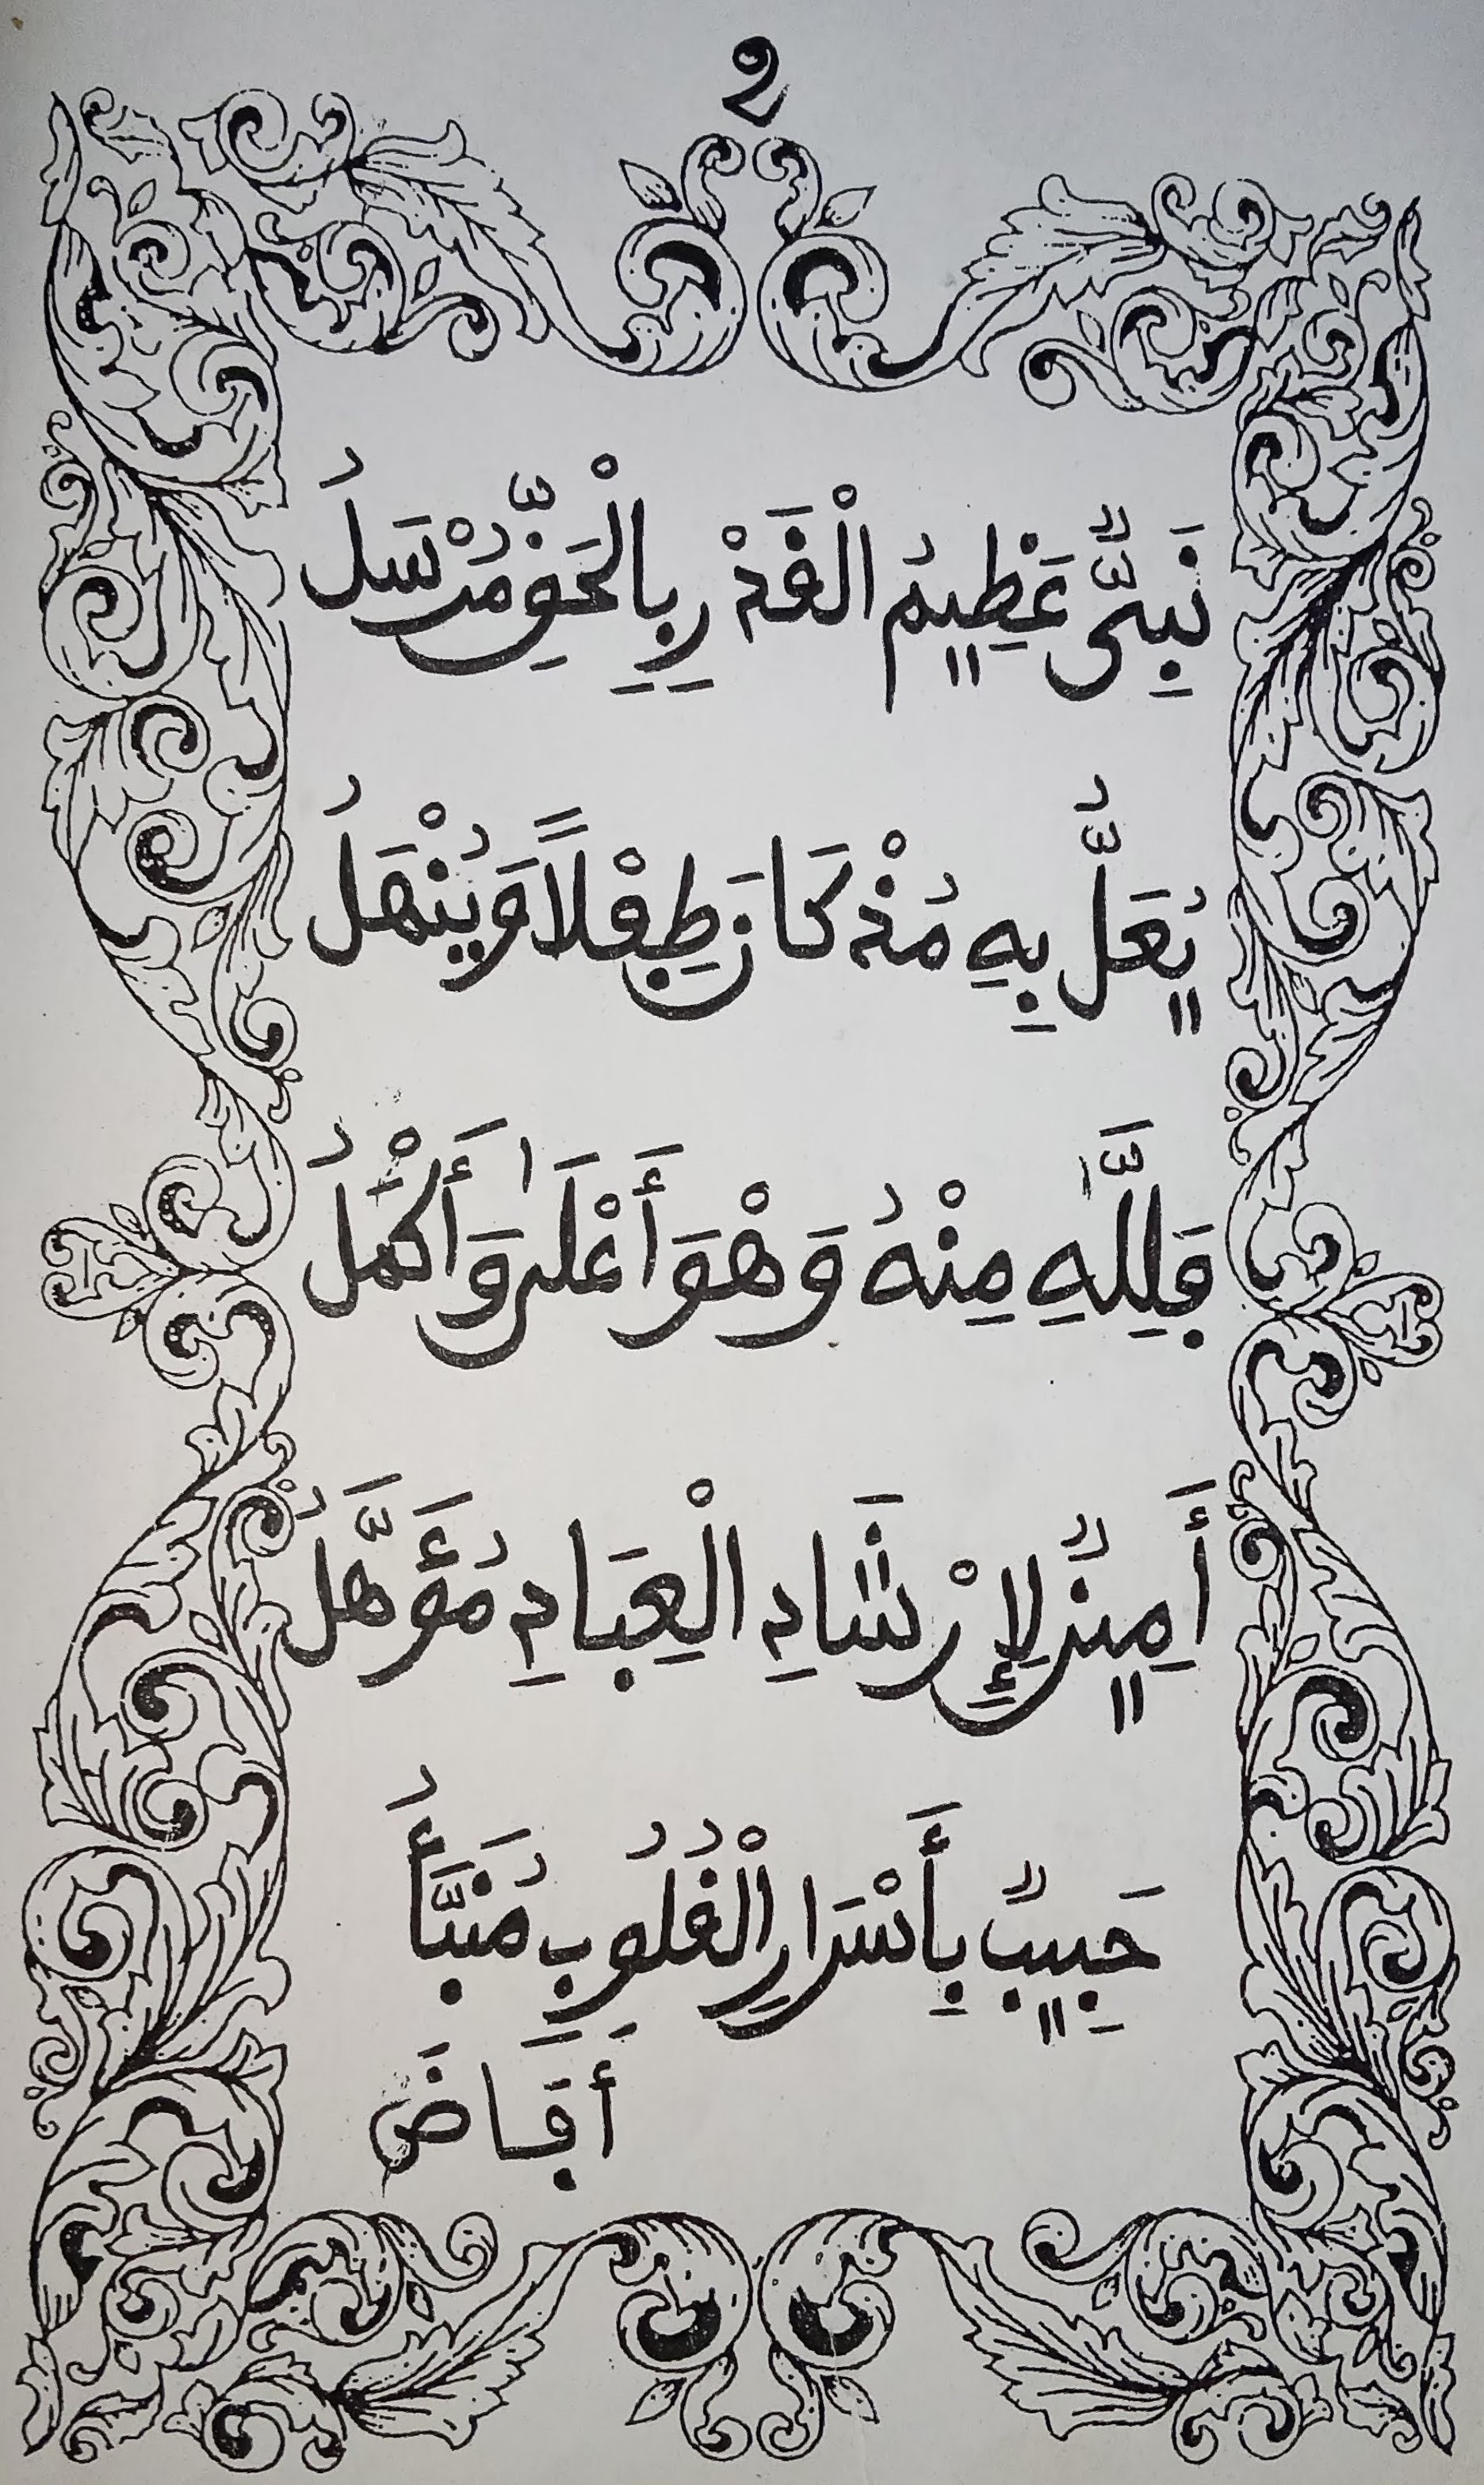 2
نَبِيٌّ عَظِيمُ الْقَدْرِ بِالْحَقِّ مُرْسَلُ
يُعَلُّ بِهِ مُذْ كَانَ طِفْلاً وَيُنْهَلُ
فَلِلَّهِ مِنْهُ وَهْوَ أَعْلَىٰ وَأَكْمَلُ
أَمِينٌ لِإِرْشَادِ الْعِبَادِ مُؤَهَّلُ
حَبِيبٌ بِأَسْرَارِ الْقُلُوبِ مُنَبَّأُ
أَفَاضَ